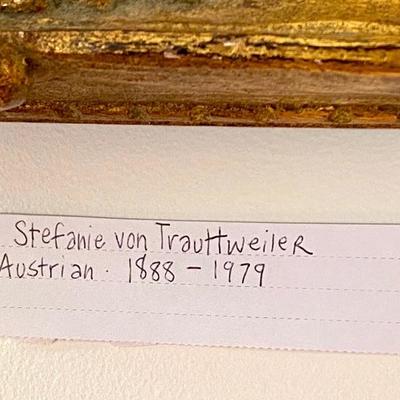 Stefanie von Trauttweiler
Austrian · 1888 - 1979